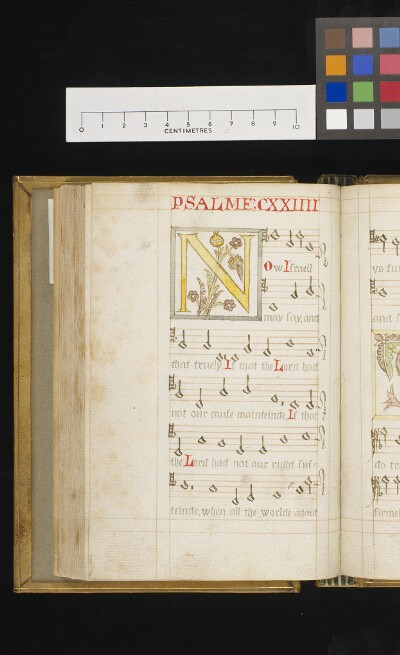 0 1 2 3 4 5 6 7 8 9 10
CENTIMETRES
PSALME:CXXIIII
Now Israell
may say, and
that truely, If that the Lord had
not our cause mainteinde If that
the Lord had not our right sus-
teinde, when all the worlde against
do